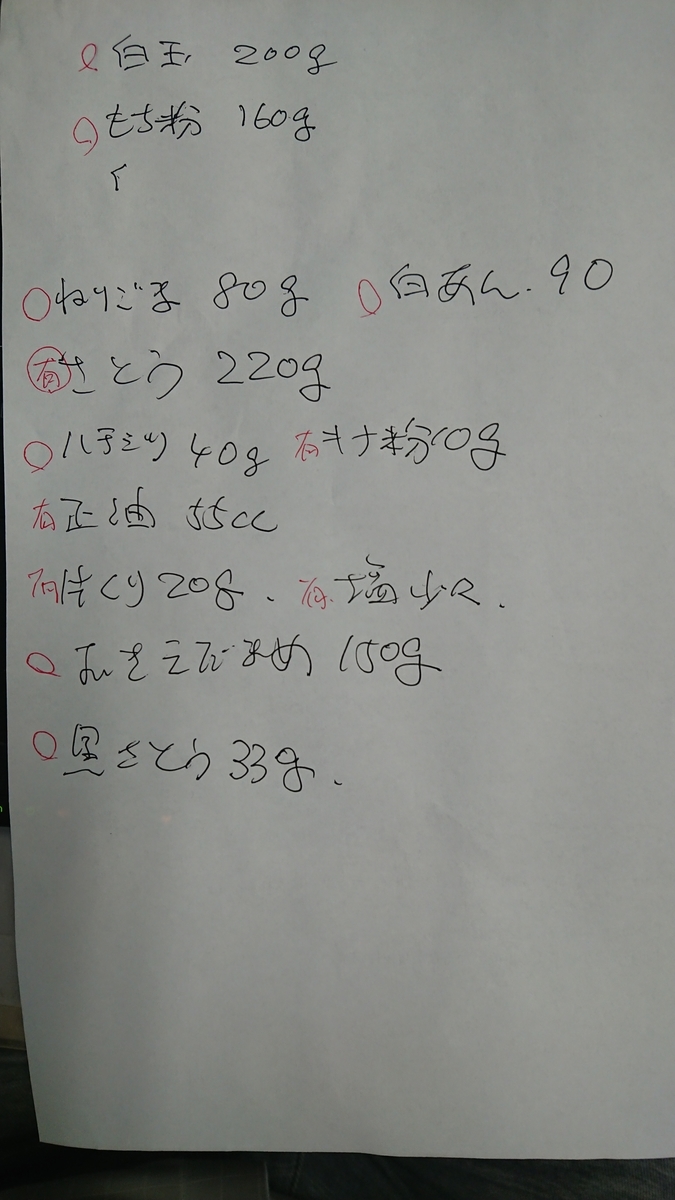 ○白玉 200g
○もち粉 160g
○ねりごま 80g ○白あん. 90
有さとう 220g
○ハチミツ 40g 有キナ粉10g
有正油 55cc
有片くり20g. 有.塩少々.
○むきえだまめ 150g
○黒さとう 33g.